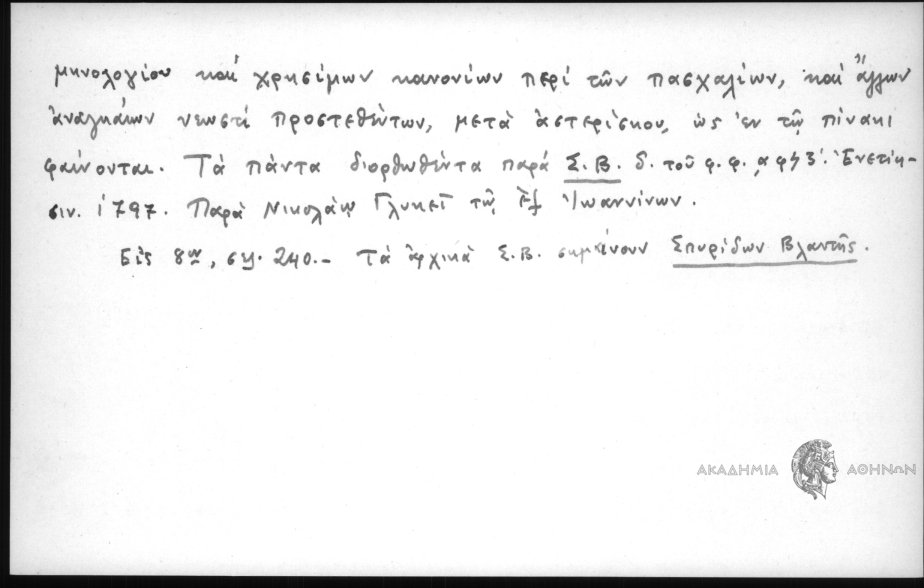 μηνολογίου καί χρησίμων κανονίων περί τῶν πασχαλίων, καί ἄλλων
ἀναγκαίων νεωστί προστεθέντων, μετὰ ἀστερίσκου, ὡς ἐν τῷ πίνακι
φαίνονται. Τὰ πάντα διορθωθέντα παρά Σ. Β. δ. τοῦ φ. φ. Ἐνετίη-
σιν. 1797. Παρὰ Νικολάῳ Γλυκεῖ τῷ ἐξ Ἰωαννίνων.
Εἰς 8ον, σελ. 240.- Τὰ ἀρχικὰ Σ. Β. σημαίνουν Σπυρίδων Βλαντῆς.
ΑΚΑΔΗΜΙΑ ΑΘΗΝΩΝ